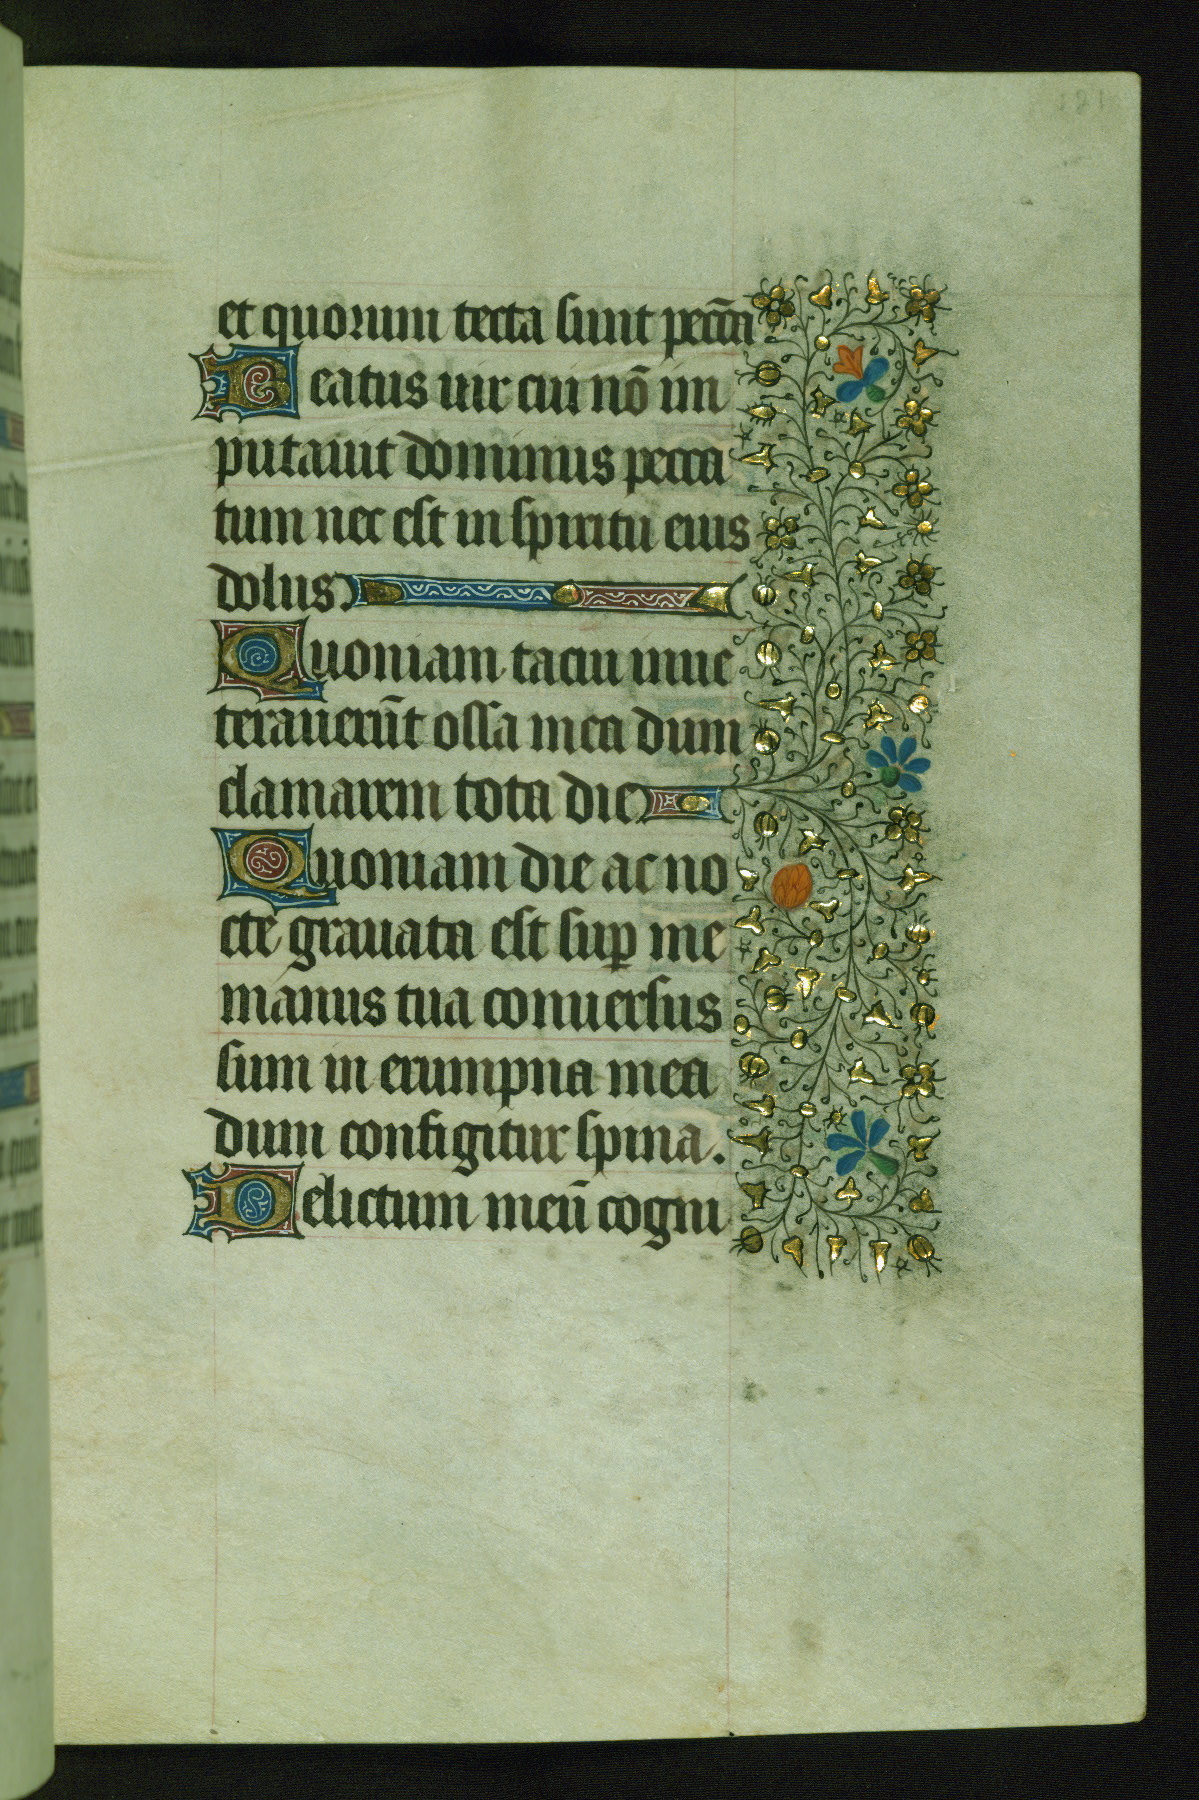 et quorum tecta sunt pecc̄a
Beatus uir cui nō im
putauit dominus pecca
tum nec est in spiritu eius
dolus
Quoniam tacui inue
terauerūt ossa mea dum
clamarem tota die
Quoniam die ac no
cte grauata est sup̱ me
manus tua conuersus
sum in erumpna mea
dum configitur spina.
Delictum meū cogni